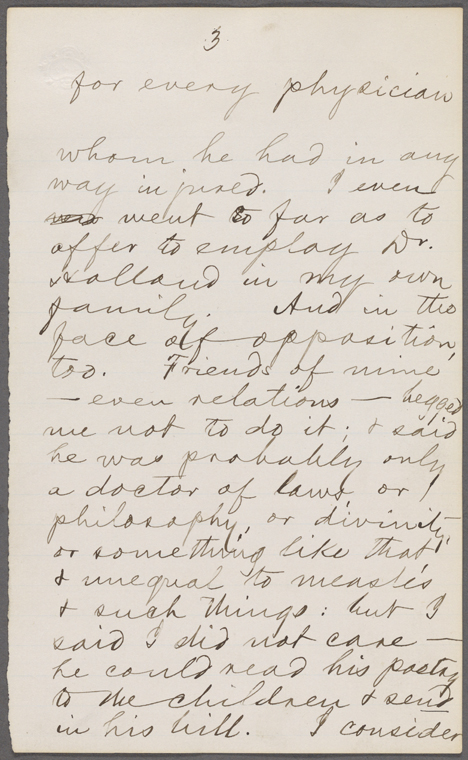 3
for every physician
whom he had in any
way injured. I even
went so far as to
offer to employ Dr.
Holland in my own
family. And in the
face of opposition,
too. Friends of mine
— even relations — begged
me not to do it; & said
he was probably only
a doctor of laws, or
philosophy, or divinity,
or something like that,
& unequal to measles
& such things: but I
said I did not care —
he could read his poetry
to the children & send
in his bill. I consider